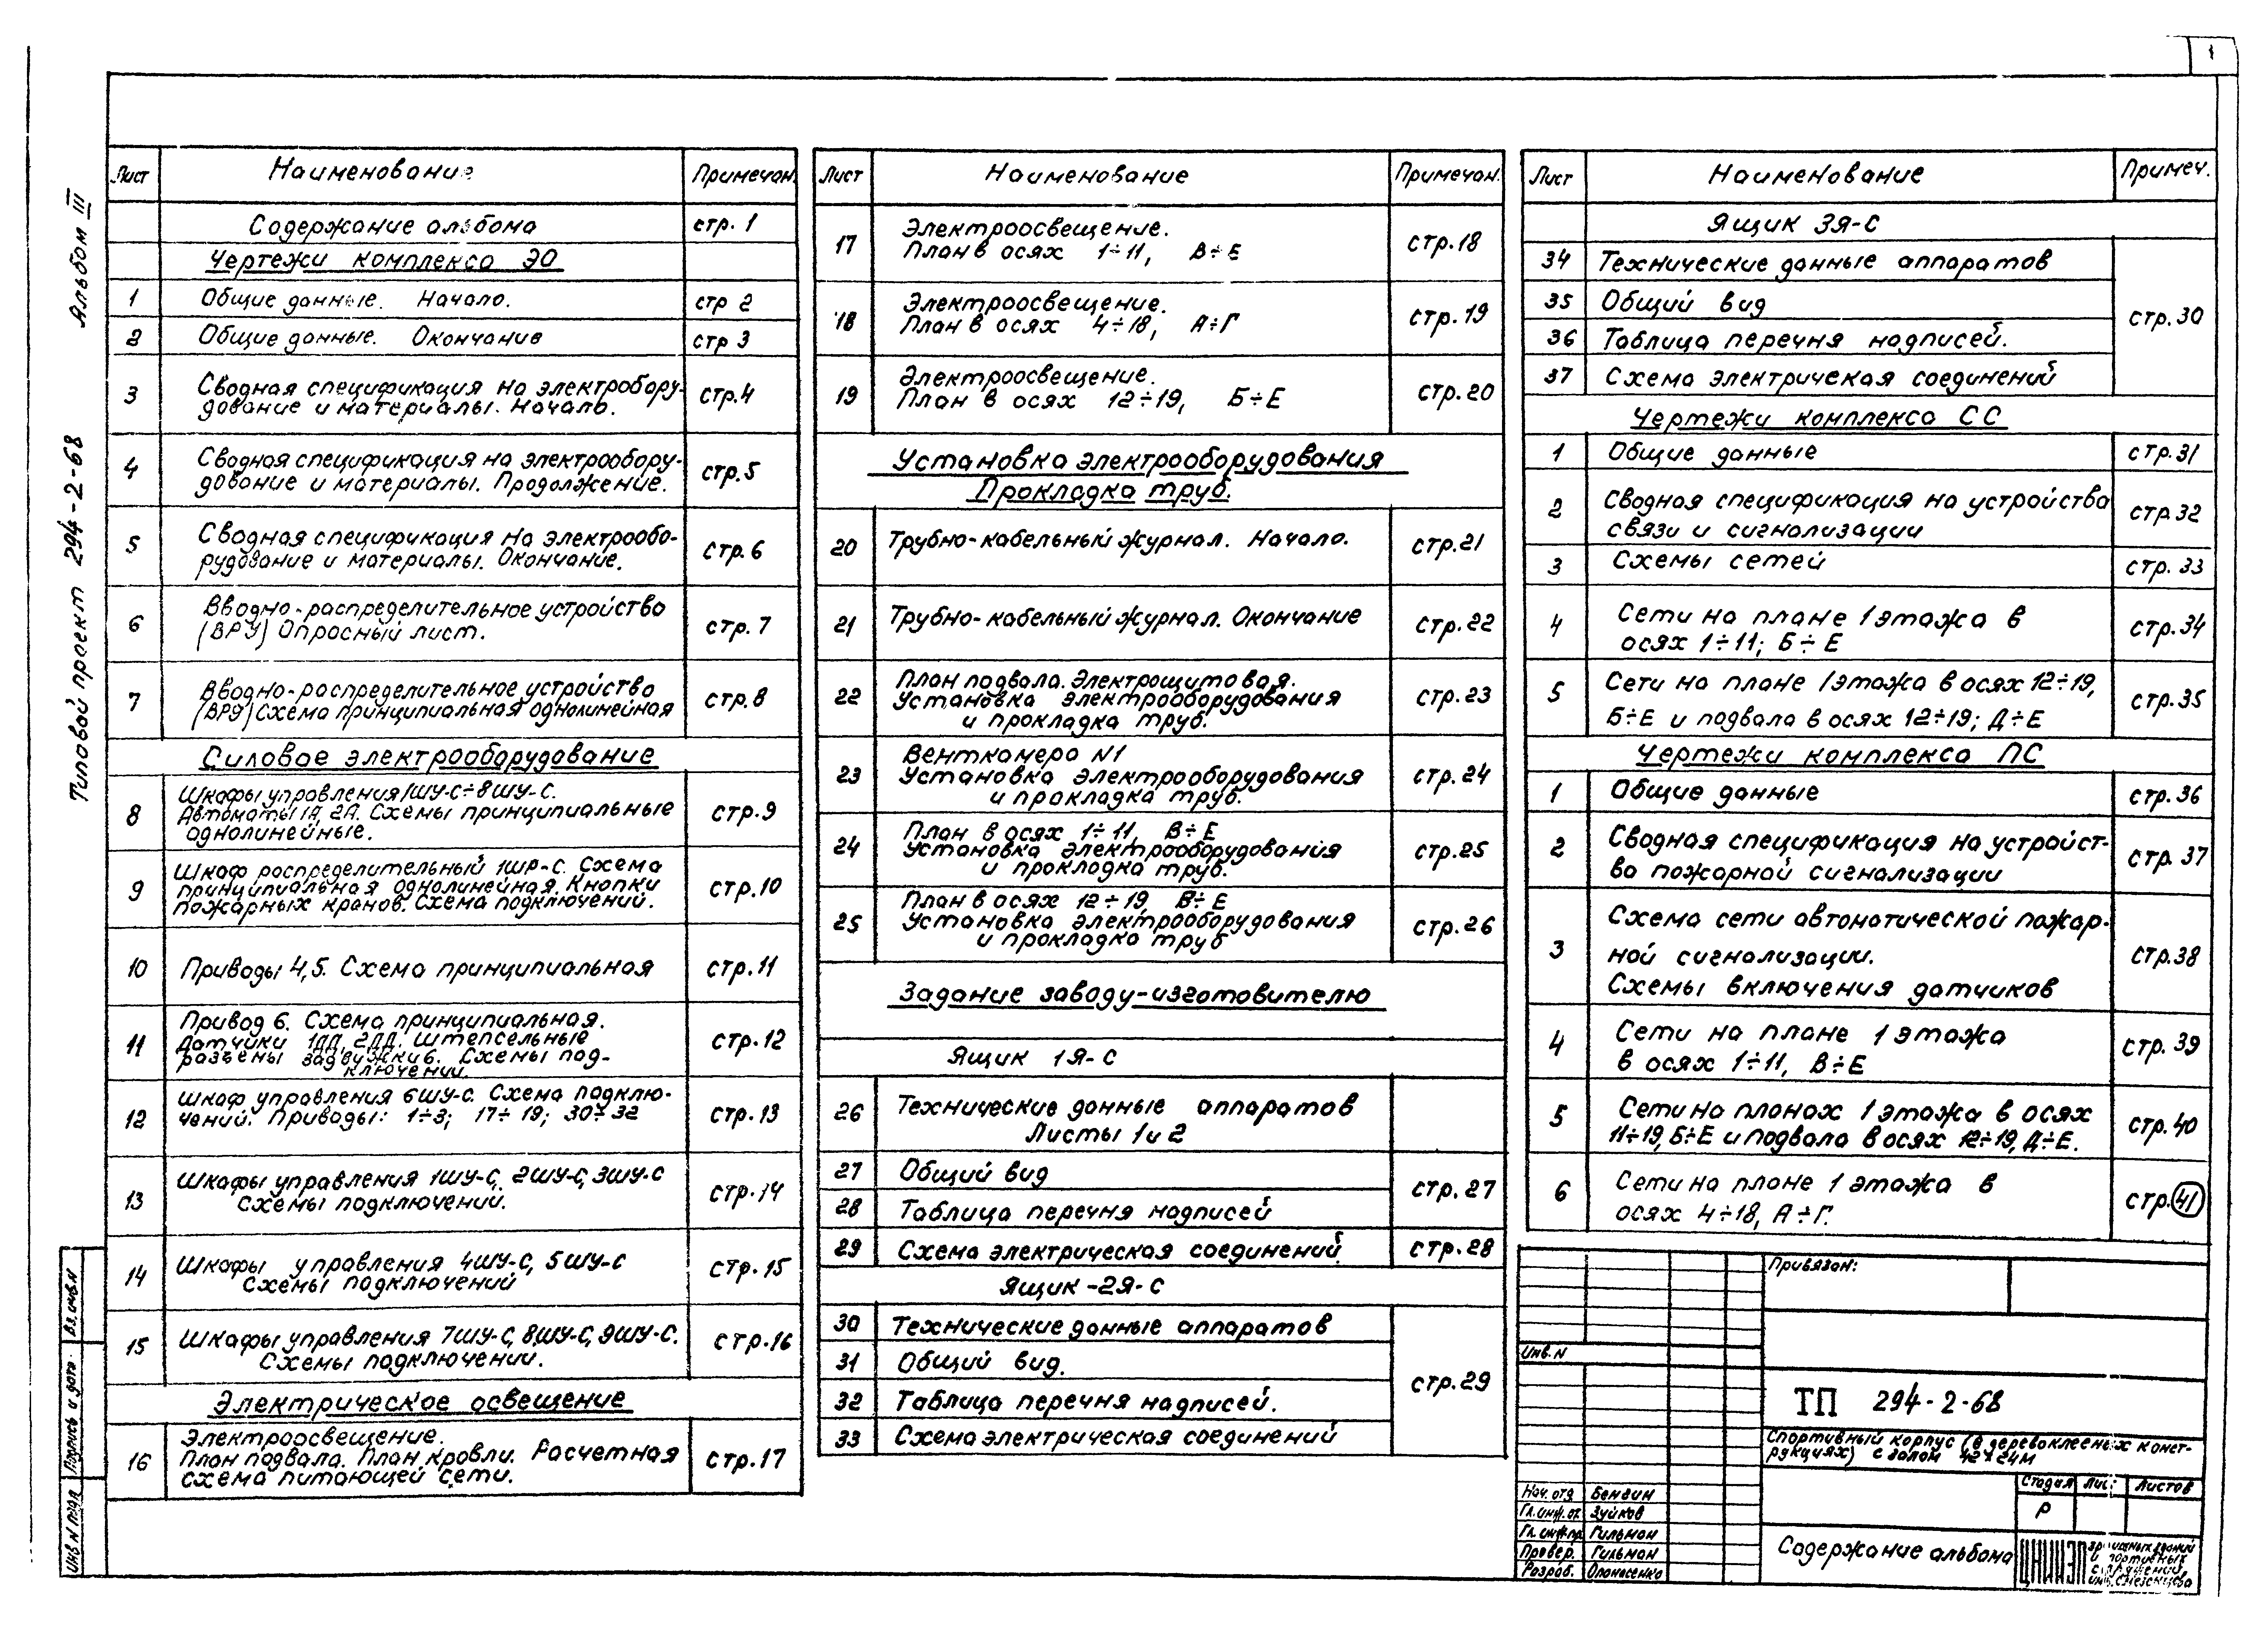 1
Типовой проект 294-2-68 Альбом III
Лист Наименование Примечан.
Содержание альбома стр. 1
Чертежи комплекса ЭО
1 Общие данные. Начало. стр 2
2 Общие данные. Окончание стр 3
3 Сводная спецификация на электробору-
дование и материалы. Начало. стр.4
4 Сводная спецификация на электрообору-
дование и материалы. Продолжение. стр.5
5 Сводная спецификация на электрообо-
рудование и материалы. Окончание. стр.6
6 Вводно-распределительное устройство
(ВРУ) Опросный лист. стр.7
7 Вводно-распределительное устройство
(ВРУ) Схема принципиальная однолинейная стр.8
Силовое электрооборудование
8 Шкафы управления 1ШУ-С÷8ШУ-С.
Автоматы 1А, 2А. Схемы принципиальные
однолинейные. стр.9
9 Шкаф распределительный 1ШР-С. Схема
принципиальная однолинейная. Кнопки
пожарных кранов. Схема подключений. стр.10
10 Приводы 4,5. Схема принципиальная стр.11
11 Привод 6. Схема принципиальная.
Датчики 1ДД, 2ДД. Штепсельные
разъемы задвижки 6. Схемы под-
ключений. стр.12
12 Шкаф управления 6ШУ-С. Схема подклю-
чений. Приводы: 1÷3; 17÷19; 30÷32 стр.13
13 Шкафы управления 1ШУ-С, 2ШУ-С, 3ШУ-С
Схемы подключений. стр.14
14 Шкафы управления 4ШУ-С, 5ШУ-С
Схемы подключений стр.15
15 Шкафы управления 7ШУ-С, 8ШУ-С, 9ШУ-С.
Схемы подключении. стр.16
Электрическое освещение
16 Электроосвещение.
План подвала. План кровли. Расчетная
схема питающей сети. стр.17
Лист Наименование Примечан.
17 Электроосвещение.
План в осях 1÷11, В÷Е стр.18
18 Электроосвещение.
План в осях 4÷18, А÷Г стр.19
19 Электроосвещение.
План в осях 12÷19, Б÷Е стр.20
Установка электрооборудования
Прокладка труб.
20 Трубно-кабельный журнал. Начало. стр.21
21 Трубно-кабельный журнал. Окончание стр.22
22 План подвала. Электрощитовая.
Установка электрооборудования
и прокладка труб. стр.23
23 Венткамера N1
Установка электрооборудования
и прокладка труб. стр.24
24 План в осях 1÷11, В÷Е
Установка электрооборудования
и прокладка труб. стр.25
25 План в осях 12÷19 В÷Е
Установка электрооборудования
и прокладка труб стр.26
Задание заводу-изготовителю
Ящик 1Я-С
26 Технические данные аппаратов
Листы 1 и 2
27 Общий вид стр.27
28 Таблица перечня надписей
29 Схема электрическая соединений стр.28
Ящик -2Я-С
30 Технические данные аппаратов
31 Общий вид. стр.29
32 Таблица перечня надписей.
33 Схема электрическая соединений
Лист Наименование Примеч.
Ящик 3Я-С
34 Технические данные аппаратов
35 Общий вид стр.30
36 Таблица перечня надписей.
37 Схема электричекая соединений
Чертежи комплекса СС
1 Общие данные стр.31
2 Сводная спецификация на устройства
связи и сигнализации стр.32
3 Схемы сетей стр.33
4 Сети на плане 1 этажа в
осях 1÷11; Б÷Е стр.34
5 Сети на плане 1 этажа в осях 12÷19,
Б÷Е и подвала в осях 12÷19; Д÷Е стр.35
Чертежи комплекса ПС
1 Общие данные стр.36
2 Сводная спецификация на устройст-
ва пожарной сигнализации стр.37
3 Схема сети автоматической пожар-
ной сигнализации.
Схемы включения датчиков стр.38
4 Сети на плане 1 этажа
в осях 1÷11, В÷Е стр.39
5 Сети на планах 1 этажа в осях
11÷19, Б÷Е и подвала в осях 12÷19, Д÷Е. стр.40
6 Сети на плане 1 этажа в
осях 4÷18, А÷Г. стр.41
Привязан:
Инв.N
ТП 294-2-68
Спортивный корпус (в деревоклееных конст-
рукциях) с залом 42х24м
Стадия Лист Листов
Р
Нач. отд Бензин
Гл.инж.от. Зуйков
Гл.инж.пр. Гильман
Провер. Гильман
Разраб. Опанасенко
Содержание альбома
ЦНИИЭП зрелищных зданий
и спортивных
сооружений
Инв N подл Подпись и дата Вз.инв.N